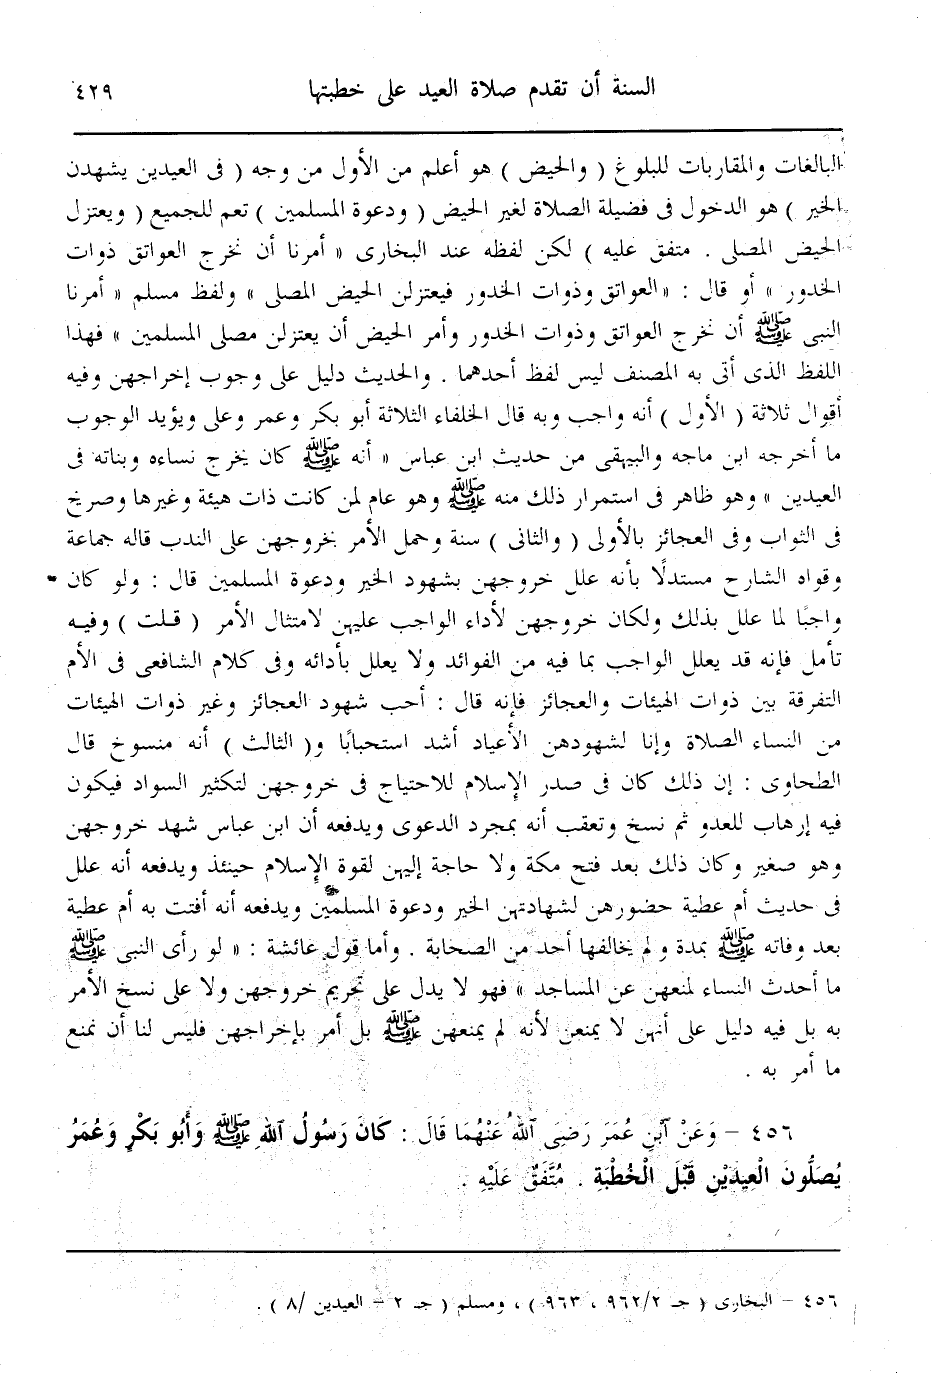 السنة أن تقدم صلاة العيد على خطبتها ٤٢٩
البالغات والمقاربات للبلوغ ( والحيض ) هو أعلم من الأول من وجه ( فى العيدين يشهدن
الخير ) هو الدخول فى فضيلة الصلاة لغير الحيض ( ودعوة المسلمين ) تعم للجميع ( ويعتزل
الحيض المصلى . متفق عليه ) لكن لفظه عند البخارى « أمرنا أن نخرج العواتق ذوات
الخدور » أو قال : «العواتق وذوات الخدور فيعتزلن الحيض المصلى » ولفظ مسلم « أمرنا
النبى ﷺ أن نخرج العواتق وذوات الخدور وأمر الحيض أن يعتزلن مصلى المسلمين » فهذا
اللفظ الذى أتى به المصنف ليس لفظ أحدهما . والحديث دليل على وجوب إخراجهن وفيه
أقوال ثلاثة ( الأول ) أنه واجب وبه قال الخلفاء الثلاثة أبو بكر وعمر وعلى ويؤيد الوجوب
ما أخرجه ابن ماجه والبيهقى من حديث ابن عباس « أنه ﷺ كان يخرج نساءه وبناته فى
العيدين » وهو ظاهر فى استمرار ذلك منه ﷺ وهو عام لمن كانت ذات هيئة وغيرها وصريح
فى الثواب وفى العجائز بالأولى ( والثانى ) سنة وحمل الأمر بخروجهن على الندب قاله جماعة
وقواه الشارح مستدلًا بأنه علل خروجهن بشهود الخير ودعوة المسلمين قال : ولو كان
واجبًا لما علل بذلك ولكان خروجهن لأداء الواجب عليهن لامتثال الأمر ( قلت ) وفيه
تأمل فإنه قد يعلل الواجب بما فيه من الفوائد ولا يعلل بأدائه وفى كلام الشافعى فى الأم
التفرقة بين ذوات الهيئات والعجائز فإنه قال : أحب شهود العجائز وغير ذوات الهيئات
من النساء الصلاة وإنا لشهودهن الأعياد أشد استحبابًا و( الثالث ) أنه منسوخ قال
الطحاوى : إن ذلك كان فى صدر الإسلام للاحتياج فى خروجهن لتكثير السواد فيكون
فيه إرهاب للعدو ثم نسخ وتعقب أنه بمجرد الدعوى ويدفعه أن ابن عباس شهد خروجهن
وهو صغير وكان ذلك بعد فتح مكة ولا حاجة إليهن لقوة الإسلام حينئذ ويدفعه أنه علل
فى حديث أم عطية حضورهن لشهادتهن الخير ودعوة المسلمين ويدفعه أنه أفتت به أم عطية
بعد وفاته ﷺ بمدة ولم يخالفها أحد من الصحابة . وأما قول عائشة : « لو رأى النبى ﷺ
ما أحدث النساء لمنعهن عن المساجد » فهو لا يدل على تحريم خروجهن ولا على نسخ الأمر
به بل فيه دليل على أنهن لا يمنعن لأنه لم يمنعهن ﷺ بل أمر بإخراجهن فليس لنا أن نمنع
ما أمر به .
٤٥٦ – وَعَنْ ٱبْنِ عُمَرَ رَضِىَ ٱللهُ عَنْهُمَا قَالَ : كَانَ رَسُولُ ٱللهِ ﷺ وَأَبُو بَكْرٍ وَعُمَرُ
يُصَلُّونَ الْعِيدَيْنِ قَبْلَ الْخُطْبَةِ . مُتَّفَقٌ عَلَيْهِ .
٤٥٦ – البخارى ( جـ ٩٦٢/٢ ، ٩٦٣ ) ، ومسلم ( جـ ٢ – العيدين /٨ ) .